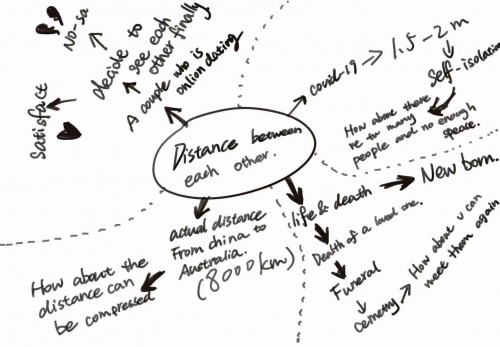 Distance between
each other.
A couple who is
onlion dating
decide to
see each
other finally
No-sa
Satisfact
covid-19
1.5-2m
Self-isolation
How about there
re tw many
people and no enough
speace.
life & death
New born.
Death of a loved one.
Funeral
cemetry
How about u can
meet them again
actual distance
From china to
Australia.
(8000km)
How about the
distance can
be compressed